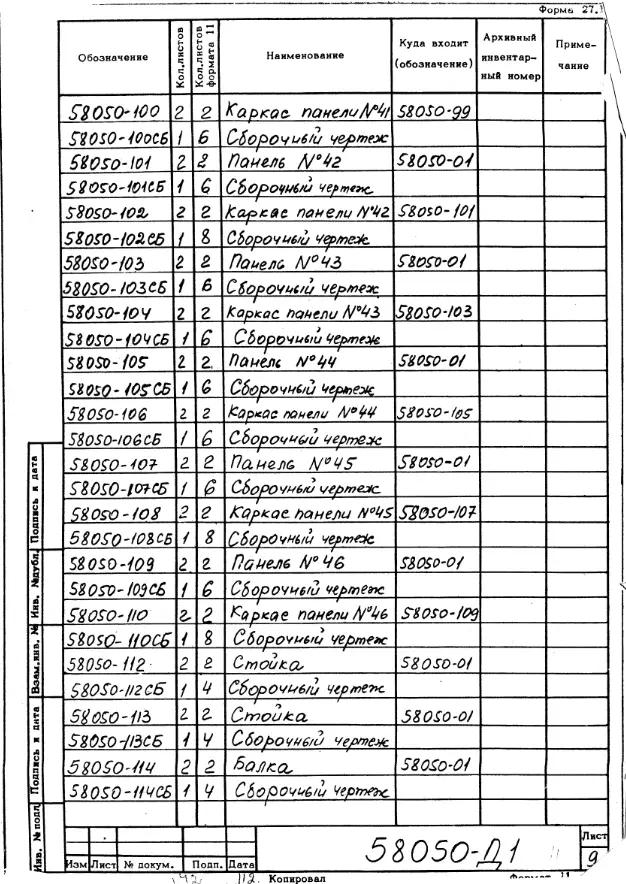 Форма 27.
Обозначение Кол.листов Кол.листов формата 11 Наименование Куда входит (обозначение) Архивный инвентарный номер Примечание
58050-100 2 2 Каркас панели №41 58050-99
58050-100СБ 1 6 Сборочный чертеж
58050-101 2 2 Панель №42 58050-01
58050-101СБ 1 6 Сборочный чертеж
58050-102 2 2 Каркас панели №42 58050-101
58050-102СБ 1 8 Сборочный чертеж
58050-103 2 2 Панель №43 58050-01
58050-103СБ 1 6 Сборочный чертеж
58050-104 2 2 Каркас панели №43 58050-103
58050-104СБ 1 6 Сборочный чертеж
58050-105 2 2 Панель №44 58050-01
58050-105СБ 1 6 Сборочный чертеж
58050-106 2 2 Каркас панели №44 58050-105
58050-106СБ 1 6 Сборочный чертеж
58050-107 2 2 Панель №45 58050-01
58050-107СБ 1 6 Сборочный чертеж
58050-108 2 2 Каркас панели №45 58050-107
58050-108СБ 1 8 Сборочный чертеж
58050-109 2 2 Панель №46 58050-01
58050-109СБ 1 6 Сборочный чертеж
58050-110 2 2 Каркас панели №46 58050-109
58050-110СБ 1 8 Сборочный чертеж
58050-112 2 2 Стойка 58050-01
58050-112СБ 1 4 Сборочный чертеж
58050-113 2 2 Стойка 58050-01
58050-113СБ 1 4 Сборочный чертеж
58050-114 2 2 Балка 58050-01
58050-114СБ 1 4 Сборочный чертеж
Подпись и дата
Инв. №дубл.
Взам.инв. №
Подпись и дата
Инв. №подл
Изм Лист № докум. Подп. Дата
58050-Д1
Лист
9
Копировал Формат 11